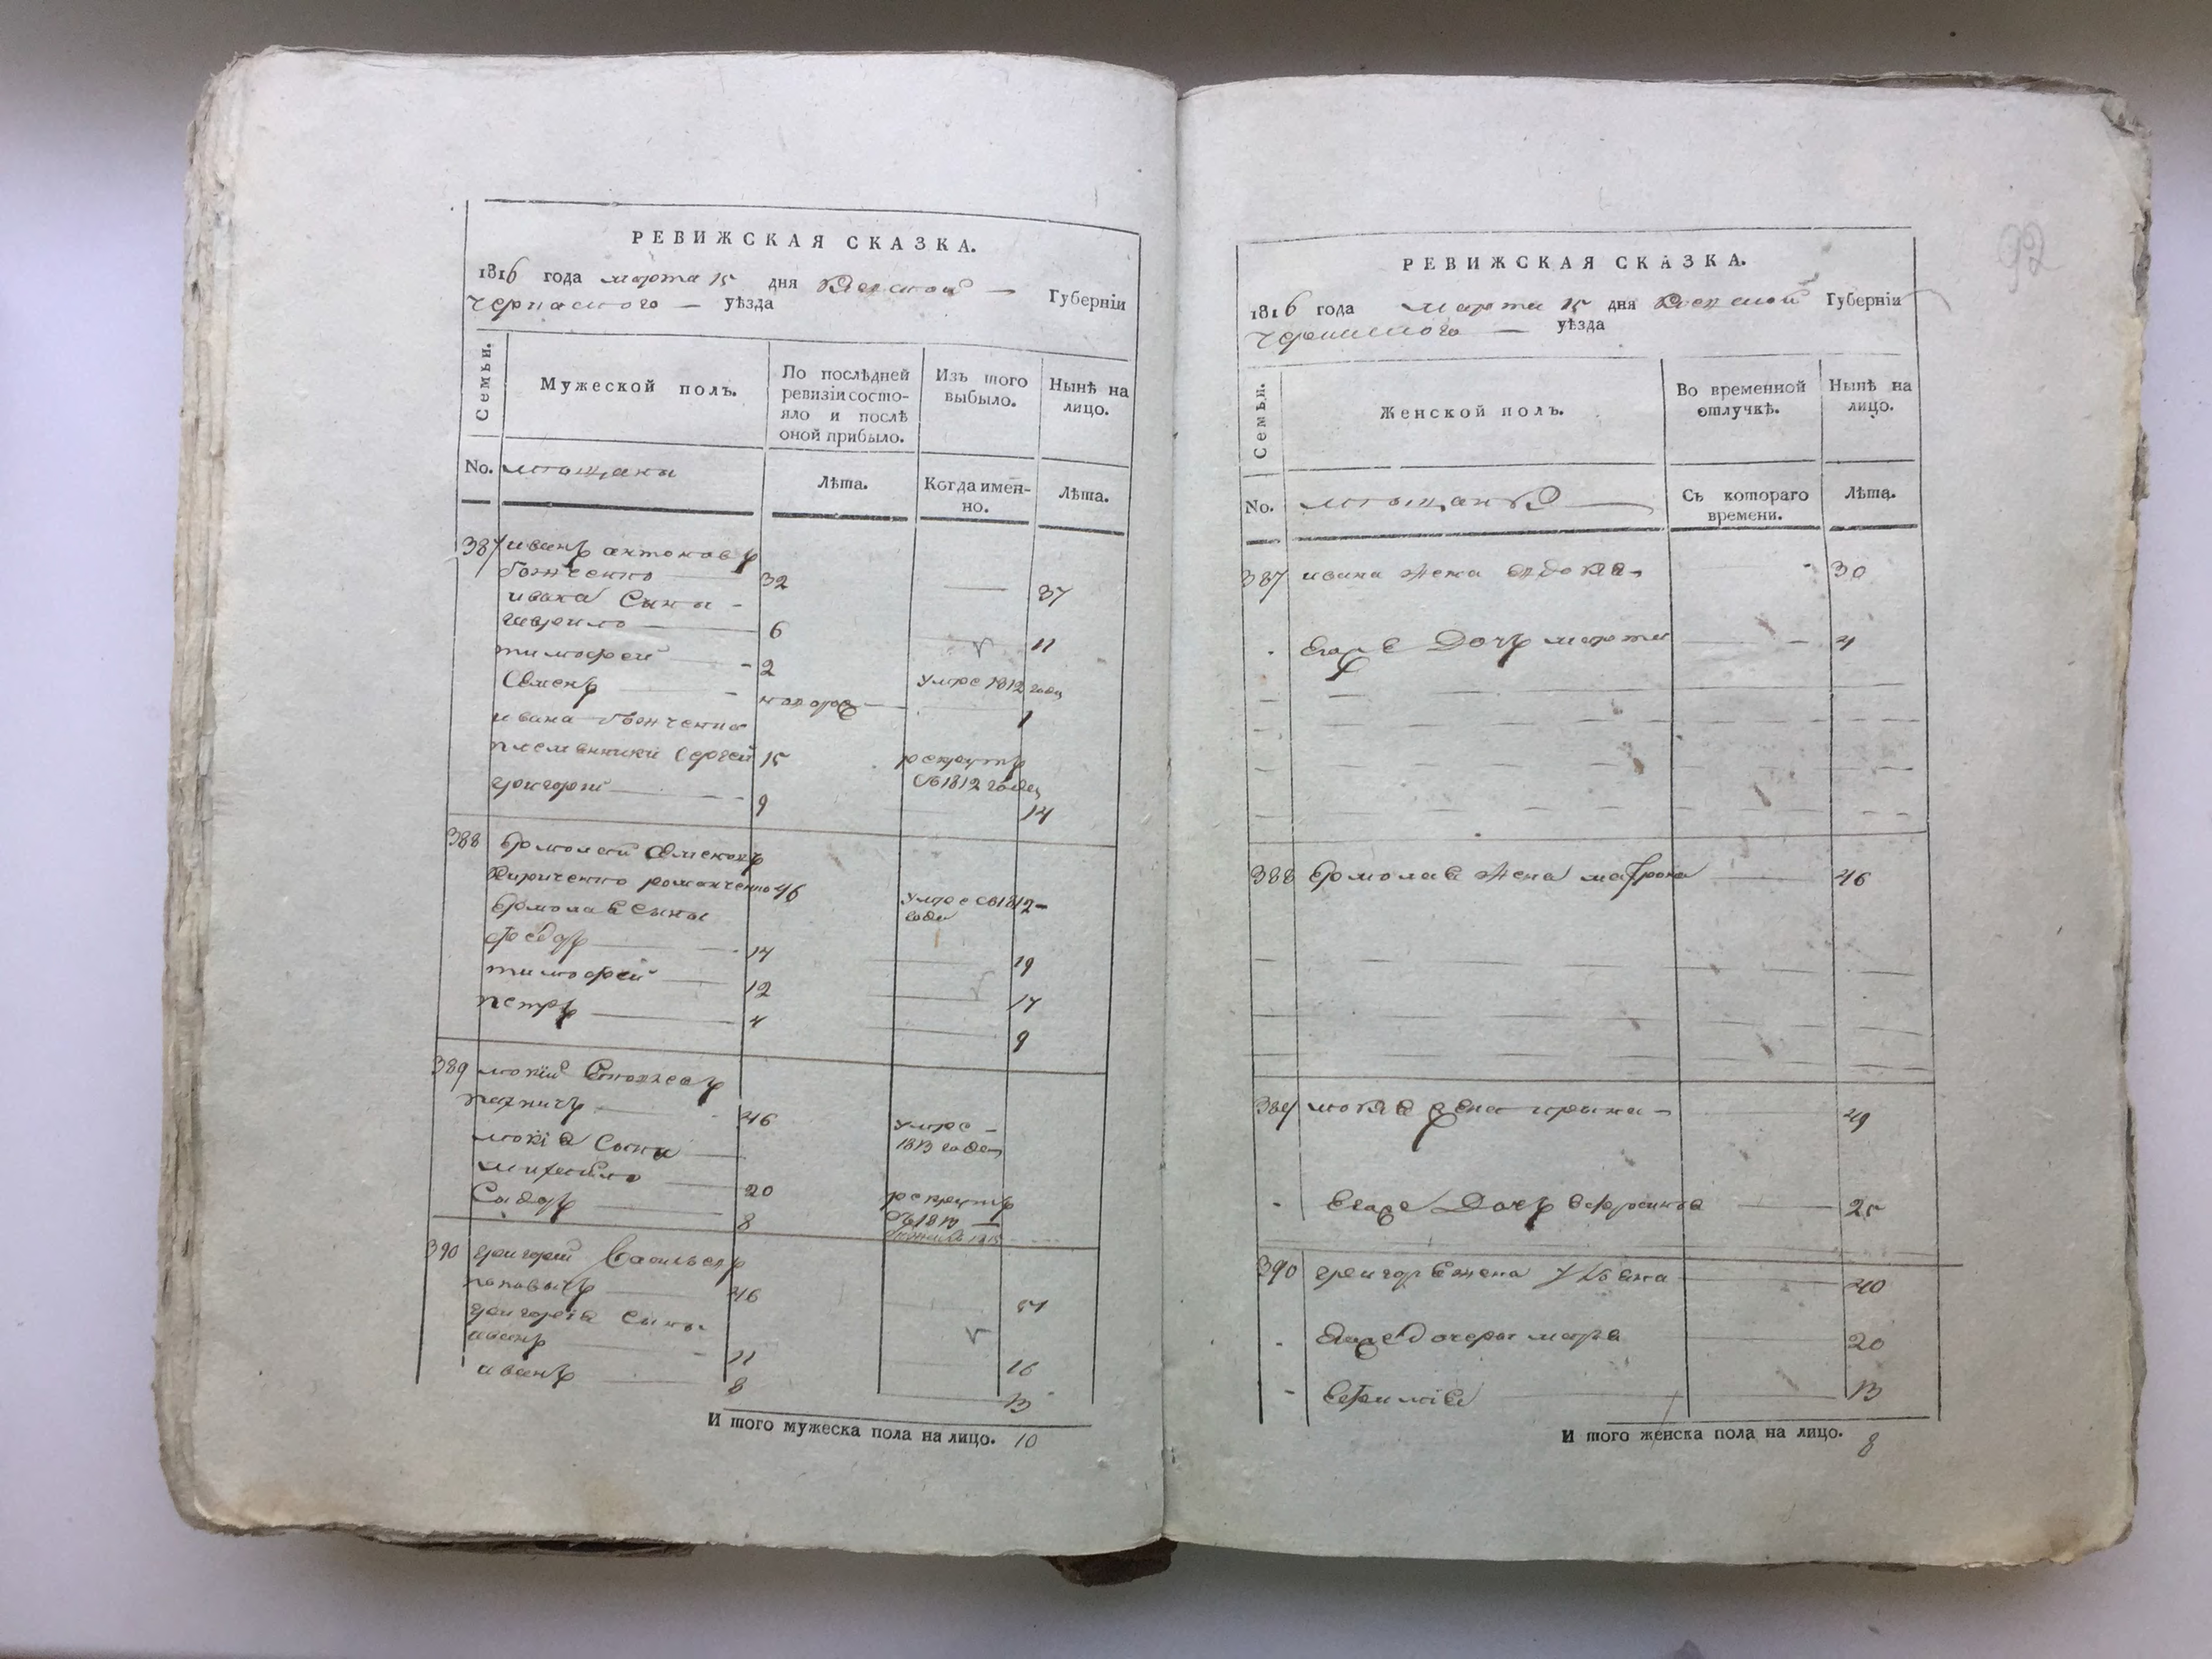 РЕВИЖСКАЯ СКАЗКА.
1816 года марта 15 дня Киевской Губерніи
Черкаского уѣзда
Семьи.
Мужеской полъ.
По послѣдней ревизіи состо-
яло и послѣ
оной прибыло.
Изъ того
выбыло.
Нынѣ на
лицо.
No. мещане
Лѣта.
Когда имен-
но.
Лѣта.
387 иванъ антоновъ
32 37
ивана Сыны
гаврило 6 11
тимофей 2 умре 1812 года
Семенъ 1
ивана
племянники Сергей 15 рекрутъ
в 1812 годе
григорій 9 14
388 Ермолай Семеновъ
Кириченко романченко 46 умре в 1812
годе
Ермолая сыны
федоръ 14 19
тимофей 12 17
петръ 4 9
389 мокій
46 умре
1813 года
мокія Сыны
михайло 20 рекрутъ
Сидоръ 8
390 григорій Васильевъ
поповичъ 46 51
григорія Сыны
иванъ 11 16
иванъ 8 13
И того мужеска пола на лицо. 10
92
РЕВИЖСКАЯ СКАЗКА.
1816 года марта 15 дня Киевской Губерніи
Черкаского уѣзда
Семьи.
Женской полъ.
Во временной
отлучкѣ.
Нынѣ на
лицо.
No.
Съ котораго
времени.
Лѣта.
387 ивана жена 30
Егоже Дочъ марта 4
388 Ермолая жена матрона 46
389 мокія жена ирина 49
Егоже Дочъ 25
390 григорія жена 40
Егоже дочери 20
13
И того женска пола на лицо. 8